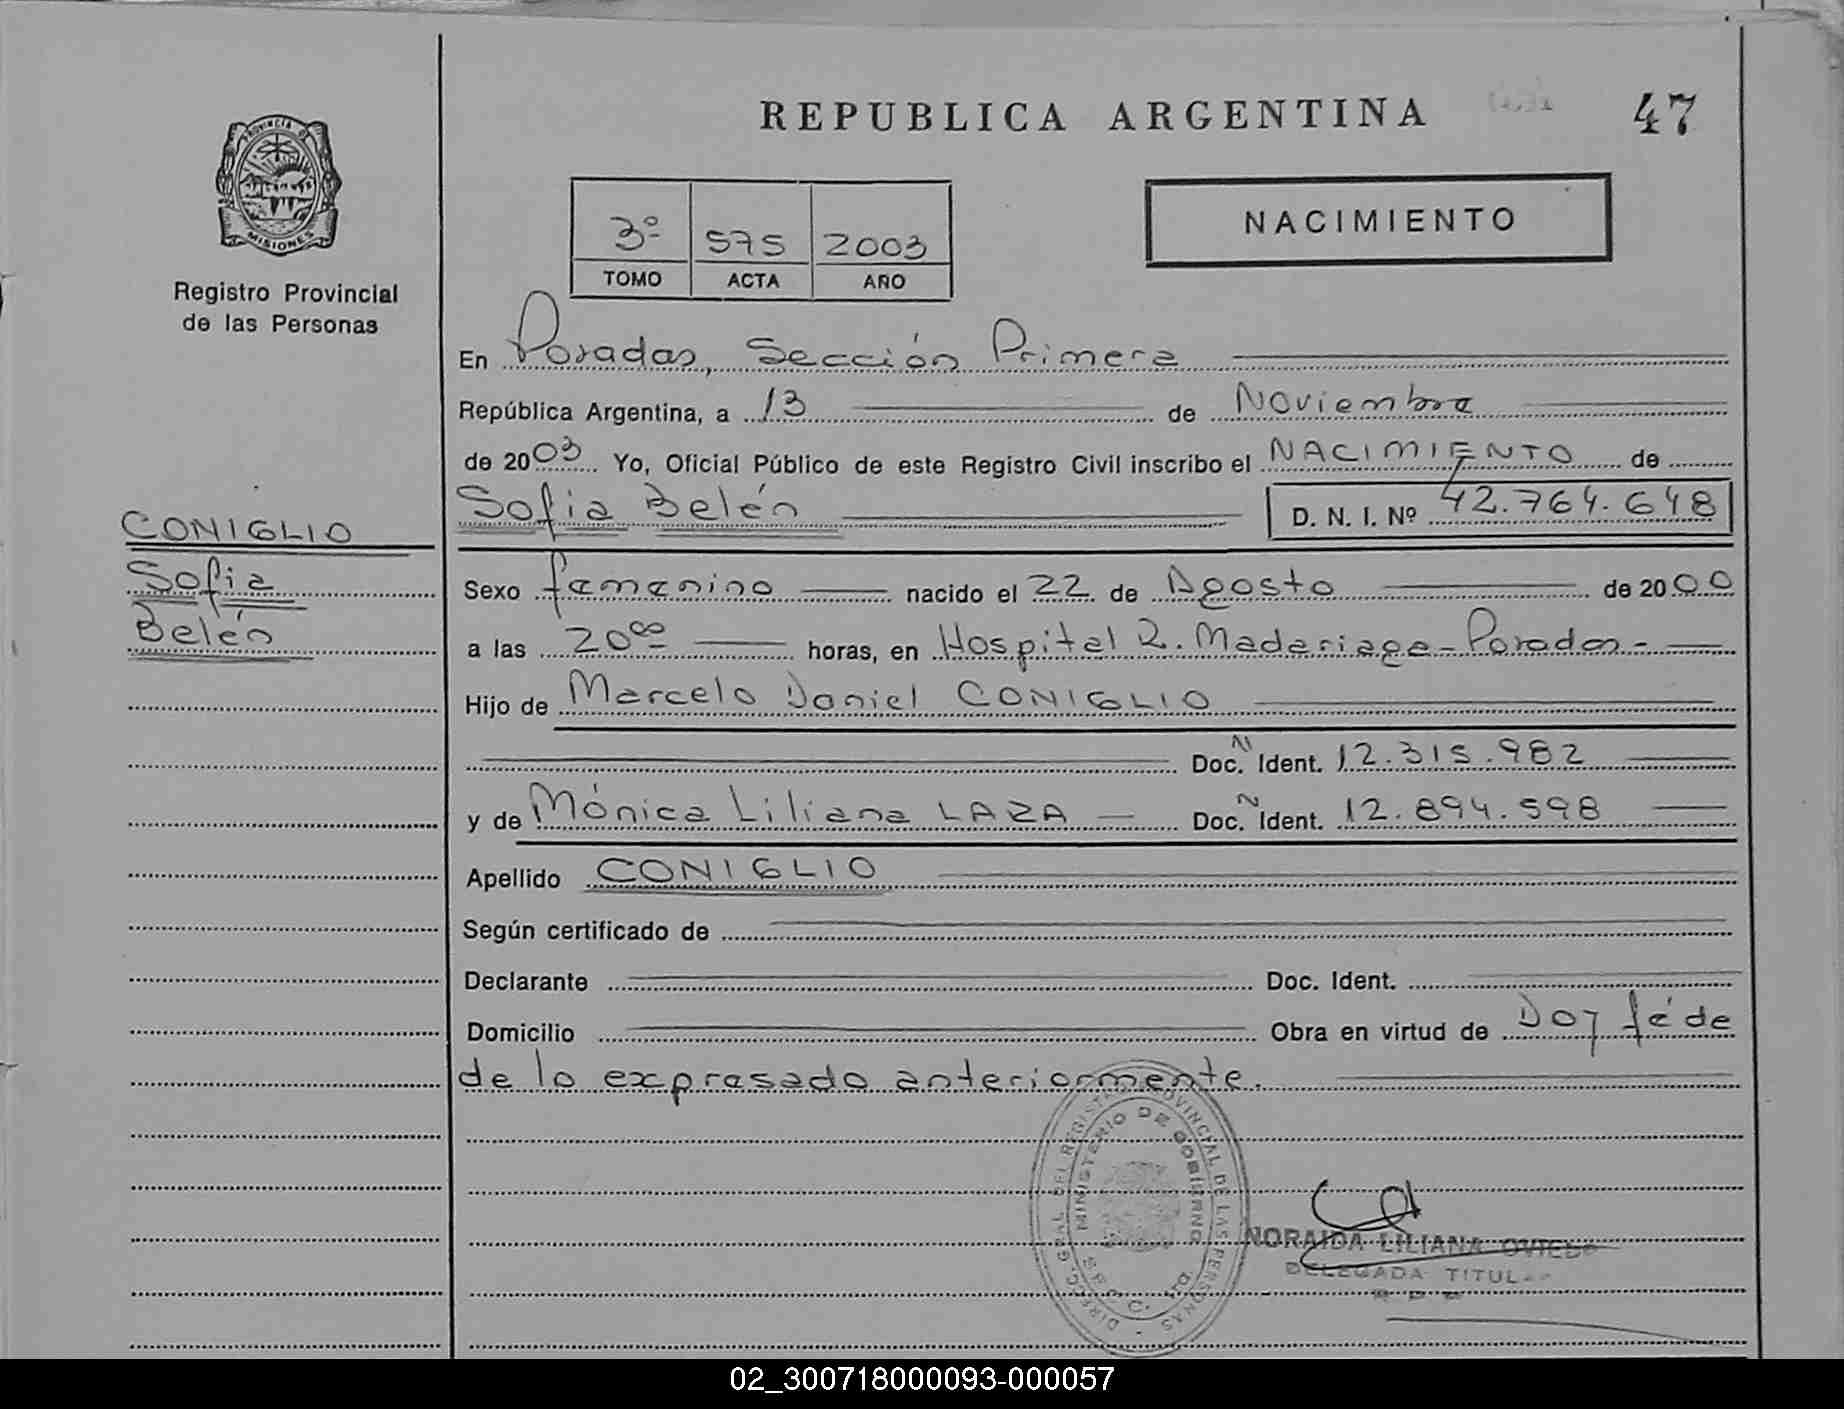 REPUBLICA ARGENTINA
47
PROVINCIA DE
MISIONES
Registro Provincial
de las Personas
3º 575 2003
TOMO ACTA AÑO
NACIMIENTO
En Posadas, Sección Primera
República Argentina, a 13 de Noviembre
de 2003 Yo, Oficial Público de este Registro Civil inscribo el NACIMIENTO de
Sofia Belén D. N. I. Nº 42.764.648
CONIGLIO
Sofia
Belén
Sexo femenino nacido el 22 de Agosto de 2000
a las 20⁰⁰ horas, en Hospital R. Madariaga - Posadas -
Hijo de Marcelo Daniel CONIGLIO
Doc. N Ident. 12.315.982
y de Mónica Liliana LAZA Doc. N Ident. 12.894.598
Apellido CONIGLIO
Según certificado de
Declarante Doc. Ident.
Domicilio Obra en virtud de Doy fé de
de lo expresado anteriormente.
DIRECC. GRAL. DEL REGISTRO PROVINCIAL DE LAS PERSONAS
MINISTERIO DE GOBIERNO
NORAIDA LILIANA OVIEDO
DELEGADA TITULAR
02_300718000093-000057